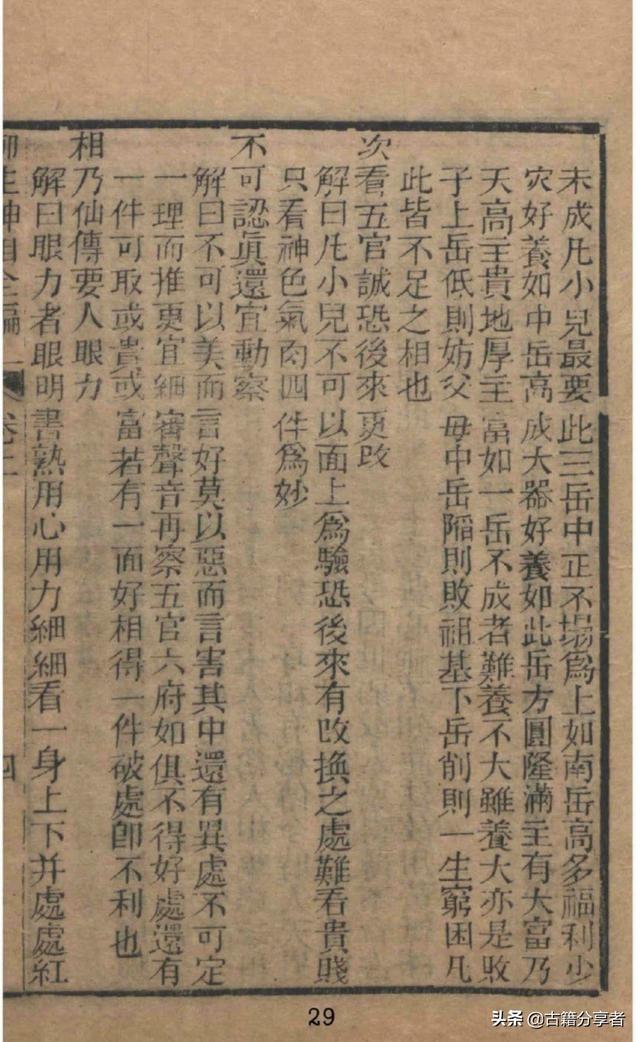 未成凡小兒最要此三岳中正不塌爲上如南岳高多福利少
灾好養如中岳高成大器好養如此岳方圓隆滿主有大富乃
天高主貴地厚主富如一岳不成者難養不大雖養大亦是敗
子上岳低則妨父母中岳陷則敗祖基下岳削則一生窮困凡
此皆不足之相也
次看五官誠恐後來更改
解曰凡小兒不可以面上爲驗恐後來有改換之處難看貴賤
只看神色氣肉四件爲妙
不可認眞還宜動察
解曰不可以美而言好莫以惡而言害其中還有異處不可定
一理而推更宜細審聲音再察五官六府如俱不得好處還有
一件可取或貴或富若有一面好相得一件破處卽不利也
相乃仙傳要人眼力
解曰眼力者眼明書熟用心用力細細看一身上下并處處紅
柳庄神相全編 卷二 四
29
头条 @古籍分享者